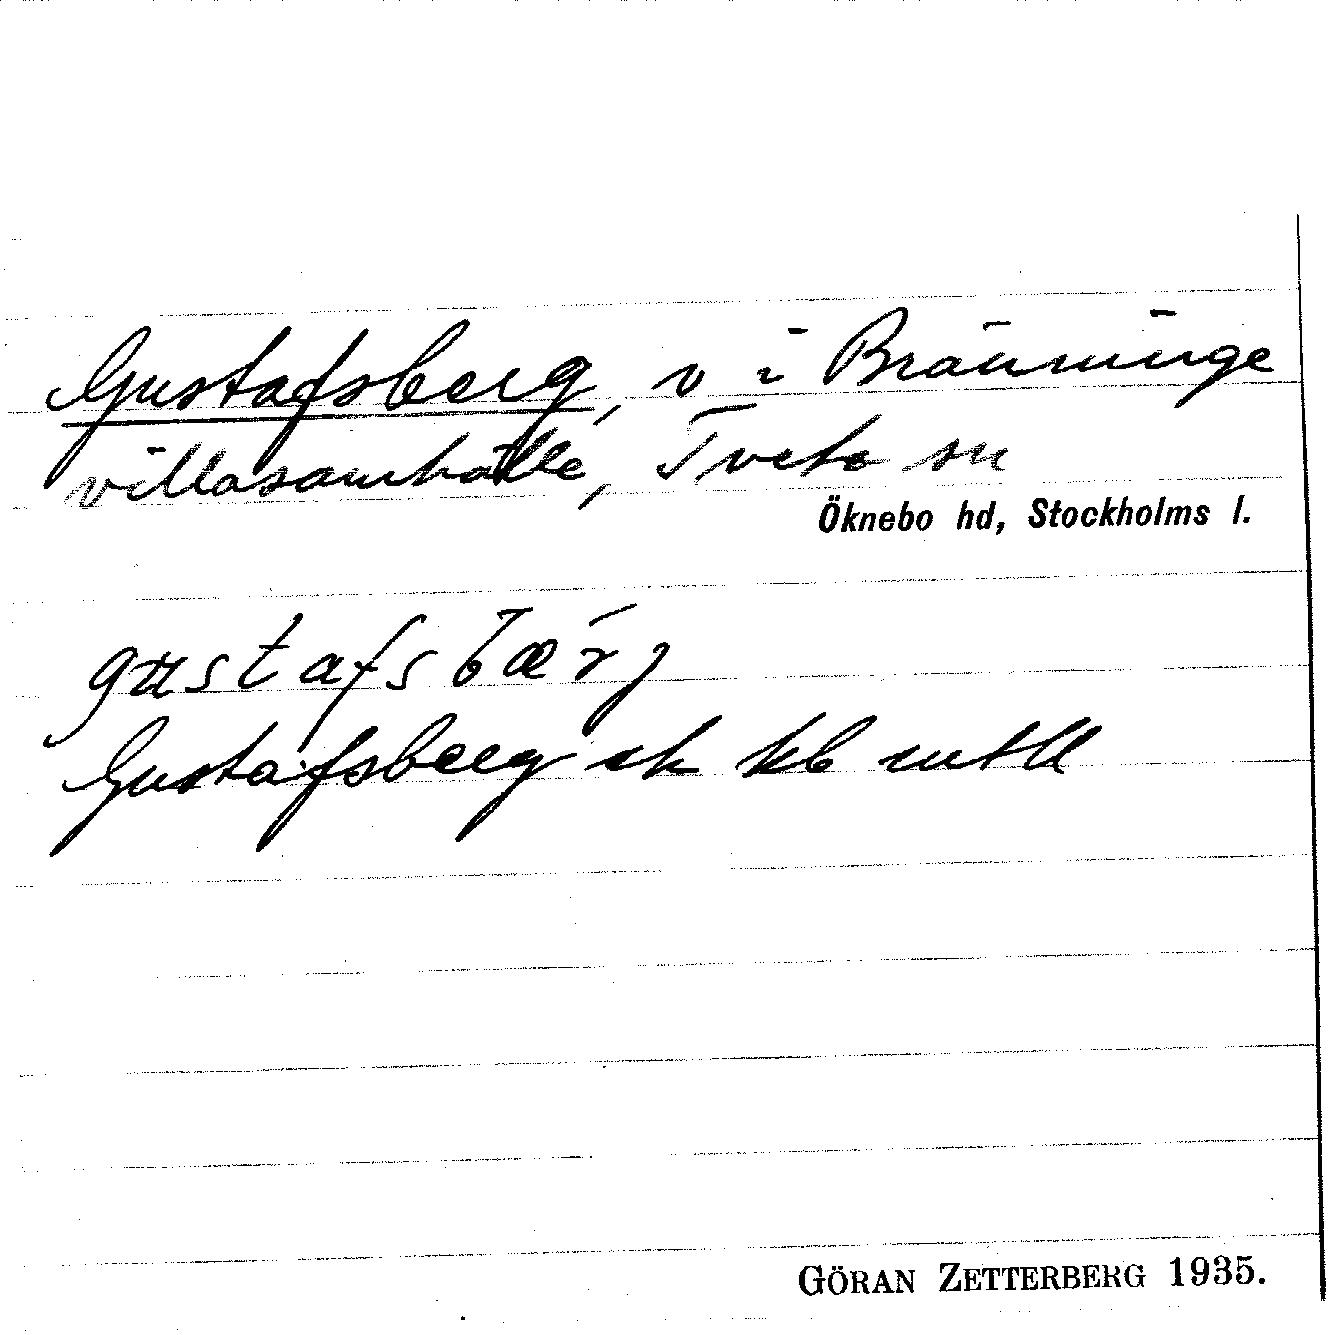 Gustafsberg, v i Bränninge
villasamhälle, Tveta sn
Öknebo hd, Stockholms l.
gustafsbærj
Gustafsberg ek kb
GÖRAN ZETTERBERG 1935.